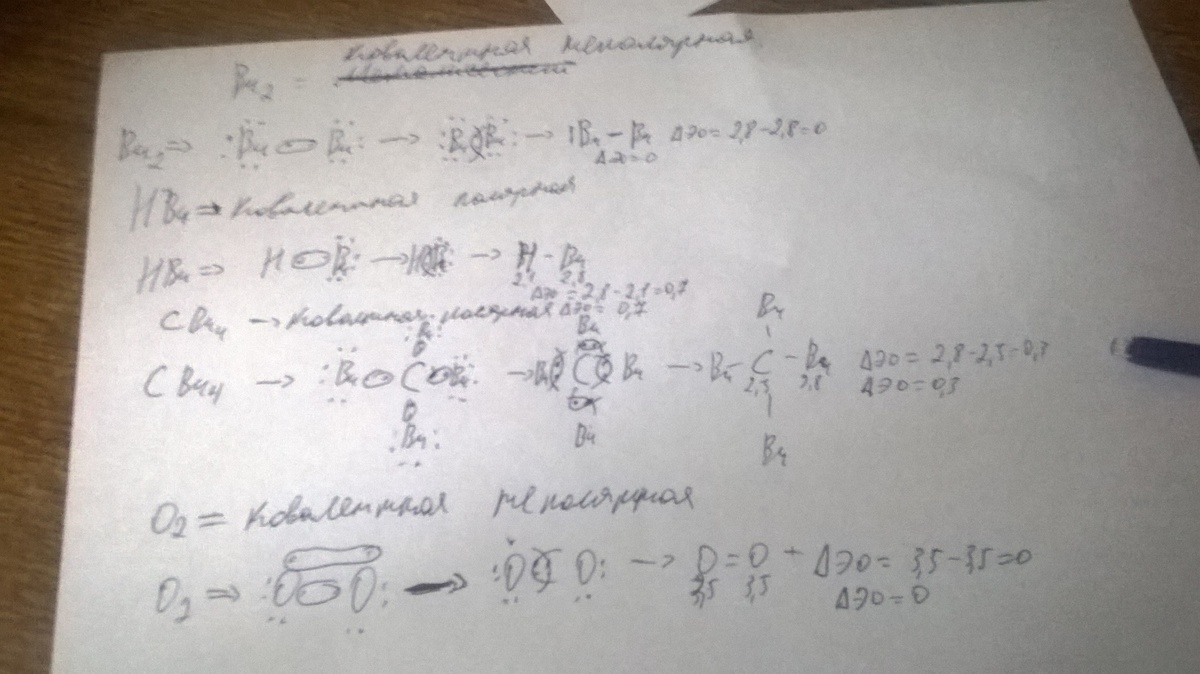 Br₂ = ковалентная неполярная
Br₂ => :Br Br: → :Br Br: → Br – Br ΔЭО = 2,8 – 2,8 = 0
ΔЭО = 0
HBr => ковалентная полярная
HBr => H Br: → H Br: → H – Br
2,1 2,8
ΔЭО = 2,8 – 2,1 = 0,7
CBr₄ → ковалентная полярная ΔЭО = 0,7
Br Br Br
CBr₄ → :Br C Br: → Br C Br → Br – C – Br ΔЭО = 2,8 – 2,5 = 0,3
2,5 2,8 ΔЭО = 0,3
:Br: Br Br
O₂ = ковалентная неполярная
O₂ => :O O: → :O O: → O = O ΔЭО = 3,5 – 3,5 = 0
3,5 3,5 ΔЭО = 0